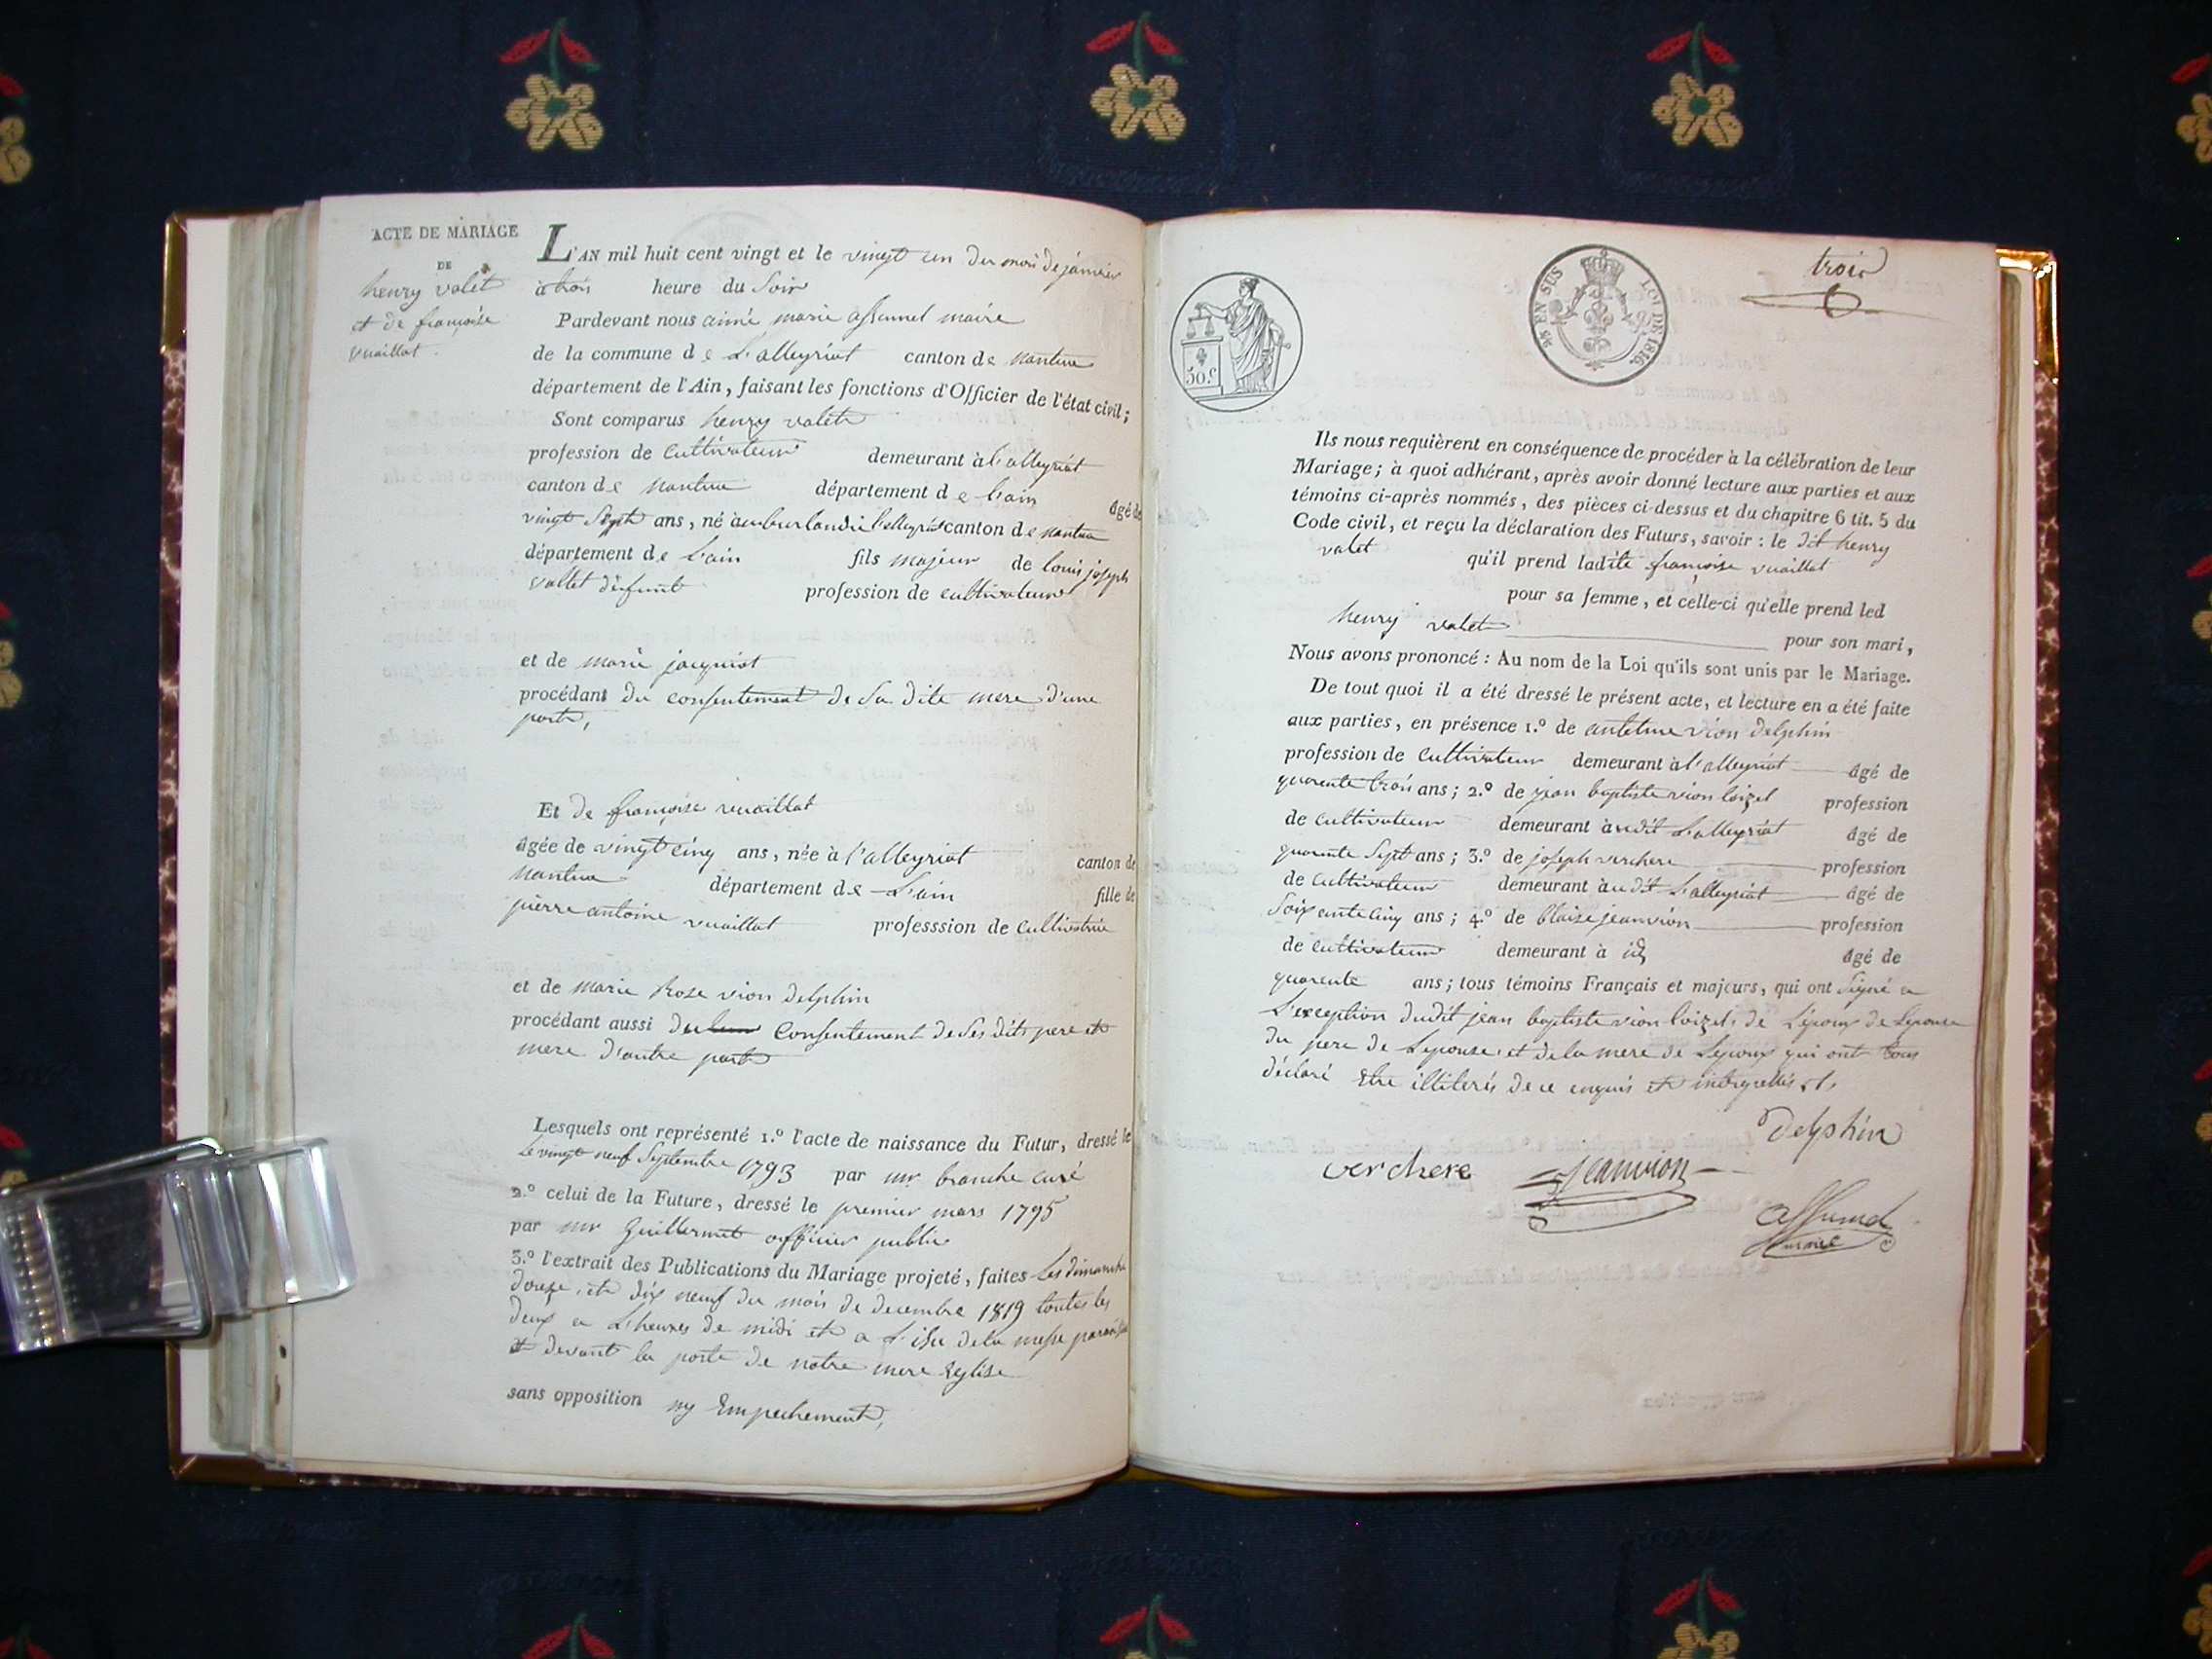 ACTE DE MARIAGE
DE
henry valet
et de françoise
vuaillat.
L'AN mil huit cent vingt et le vingt un du mois de janvier
à trois heure du soir
Pardevant nous aimé marie maire
de la commune de L'alleyriat canton de nantua
département de l'Ain, faisant les fonctions d'Officier de l'état civil;
Sont comparus henry valet
profession de cultivateur demeurant à l'alleyriat
canton de nantua département de l'ain âgé de
vingt sept ans, né canton de nantua
département de L'ain fils majeur de louis joseph
vallet défunt profession de cultivateur
et de marie jacquiot
procédant du consentement de Sa dite mere d'une
part,
Et de françoise vuaillat
âgée de vingt cinq ans, née à l'alleyriat canton de
nantua département de L'ain fille de
pierre antoine vuaillat professsion de
et de marie Rose vion delphin
procédant aussi du consentement de ses dits pere et
mere d'autre part
Lesquels ont représenté 1.º l'acte de naissance du Futur, dressé le
le vingt neuf Septembre 1793 par mr branche curé
2.º celui de la Future, dressé le premier mars 1795
par mr guillermet officier public
3.º l'extrait des Publications du Mariage projeté, faites les dimanche
douze, et dix neuf du mois de decembre 1819 toutes les
deux a L'heures de midi et a L'isu de la messe
et devant la porte de notre mere Eglise
sans opposition ny Empechement,
50.c
9es EN SUS LOI DE 1816.
trois
Ils nous requièrent en conséquence de procéder à la célébration de leur
Mariage; à quoi adhérant, après avoir donné lecture aux parties et aux
témoins ci-après nommés, des pièces ci-dessus et du chapitre 6 tit. 5 du
Code civil, et reçu la déclaration des Futurs, savoir : le dit henry
valet qu'il prend ladite françoise vuaillat
pour sa femme, et celle-ci qu'elle prend led
henry valet pour son mari,
Nous avons prononcé : Au nom de la Loi qu'ils sont unis par le Mariage.
De tout quoi il a été dressé le présent acte, et lecture en a été faite
aux parties, en présence 1.º de antelme vion delphin
profession de cultivateur demeurant à l'alleyriat âgé de
quarente trois ans; 2.º de jean baptiste vion loizel profession
de cultivateur demeurant audit L'alleyriat âgé de
quarente sept ans; 3.º de joseph verchere profession
de cultivateur demeurant audit L'alleyriat âgé de
soixante cinq ans; 4.º de blaise jeanvion profession
de cultivateur demeurant à id âgé de
quarente ans; tous témoins Français et majeurs, qui ont signé a
L'exception dudit jean baptiste vion loizel, de L'époux de Lepouse
du pere de Lepouse, et de la mere de Lepoux qui ont tous
déclaré Etre illiterés de ce enquis et
Delphin
verchere
Jeanvion
maire